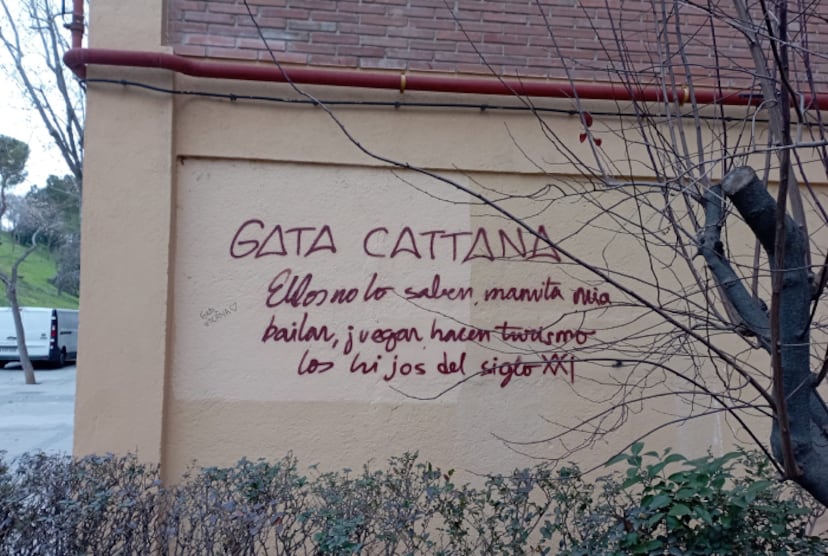 GATA CATTANA
Ellos no lo saben, mamita mia
bailan, juegan, hacen turismo
los hijos del siglo XXI
Gata